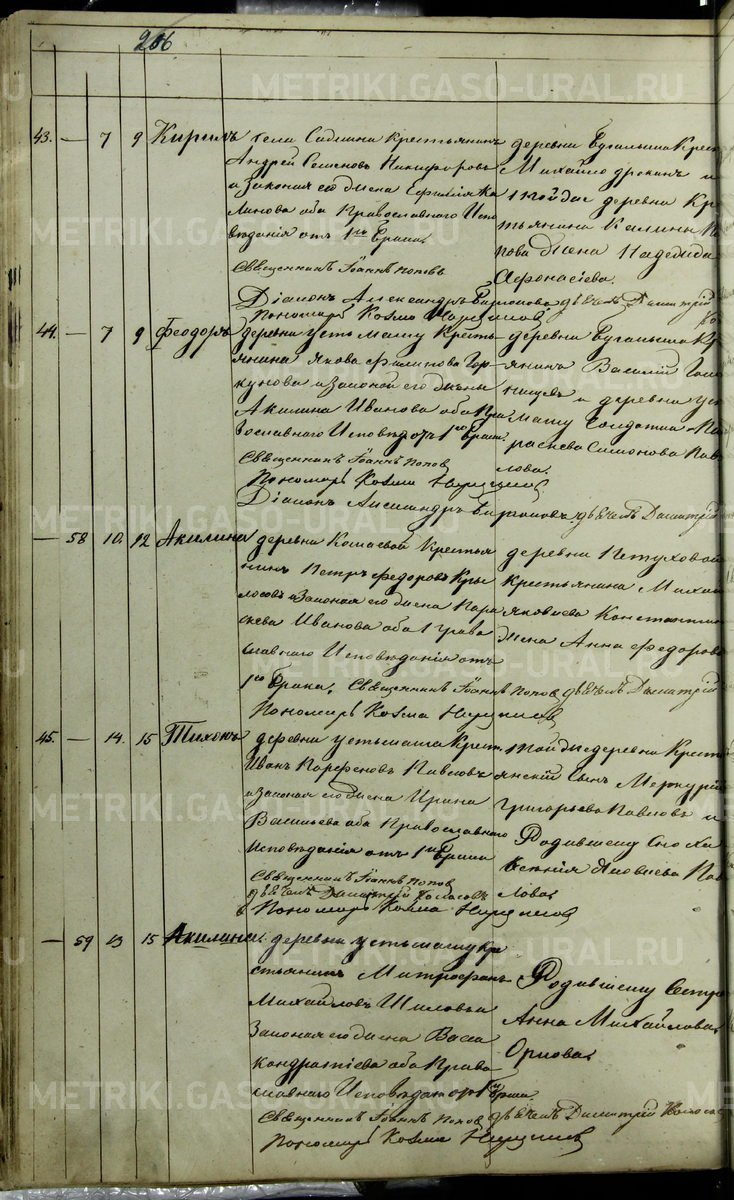 206
43. — 7 9 Кирилъ села Садмина крестьянинъ
Андрей Семеновъ Никифоровъ
и законая его жена Ефимія Ка
линова оба Православнаго Испо
вѣданія отъ 1го Брака
Священникъ Іоаннъ Поповъ
Діаконъ Александръ
Пономарь Козма
деревни Бугалыша Крес
Михайло и
той же деревни Кре
тьянина Калина П
пова жена Надежда
Афонасіева
дьячекъ Димитрій
44. — 7 9 Феодоръ деревни усть машу Кресть
янина Якова Филипова Гор
кунова и законой его жены
Акилина Иванова оба Пра
вославнаго Исповѣд отъ 1го Брака
Священникъ Іоаннъ Попов
Пономарь Козма
Діаконъ Александръ
деревни Бугалыша Кр
янинъ Василій
и деревни уст
машу Солдатка Па
раскева Самонова Пав
лова.
дьячекъ Димитрій
— 58 10. 12 Акилина деревни Комаевой Крестья
нинъ Петръ Федоровъ Кры
лосовъ и Законая его жена Пара
скева Иванова оба Права
славнаго Исповѣданія отъ
1го Брака. Священникъ Іоаннъ Попов
дьячекъ Димитрій
Пономарь Козма
деревни Петуховой
крестьянина Михаи
Яковлева Константин
жена Анна Федорова
45. — 14. 15 Тихонъ деревни устьмаша Крест
Иванъ Парфеновъ Павловъ
и законая его жена Ирина
Васильева оба Православнаго
Исповѣданія отъ 1го Брака
Священникъ Іоаннъ Попов
дьячекъ Димитрій
Пономарь Козма
той же деревни Крест
янскій Сынъ Меркурій
Григорьева Павловъ и
Родившему Сноха
Ксенія Яковлева Пав
лова
— 59 13 15 Акилина деревни устьмашу кре
стьянинъ Митрофанъ
Михайловъ Шиловъ и
Законая его жена Васса
Кандратіева оба Права
славнаго Исповѣдан отъ 1го Брака.
Священникъ Іоаннъ Попов дьячекъ Димитрій
Пономарь Козма
Родившему Сестра
Анна Михайлова
Орлова
METRIKI.GASO-URAL.RU